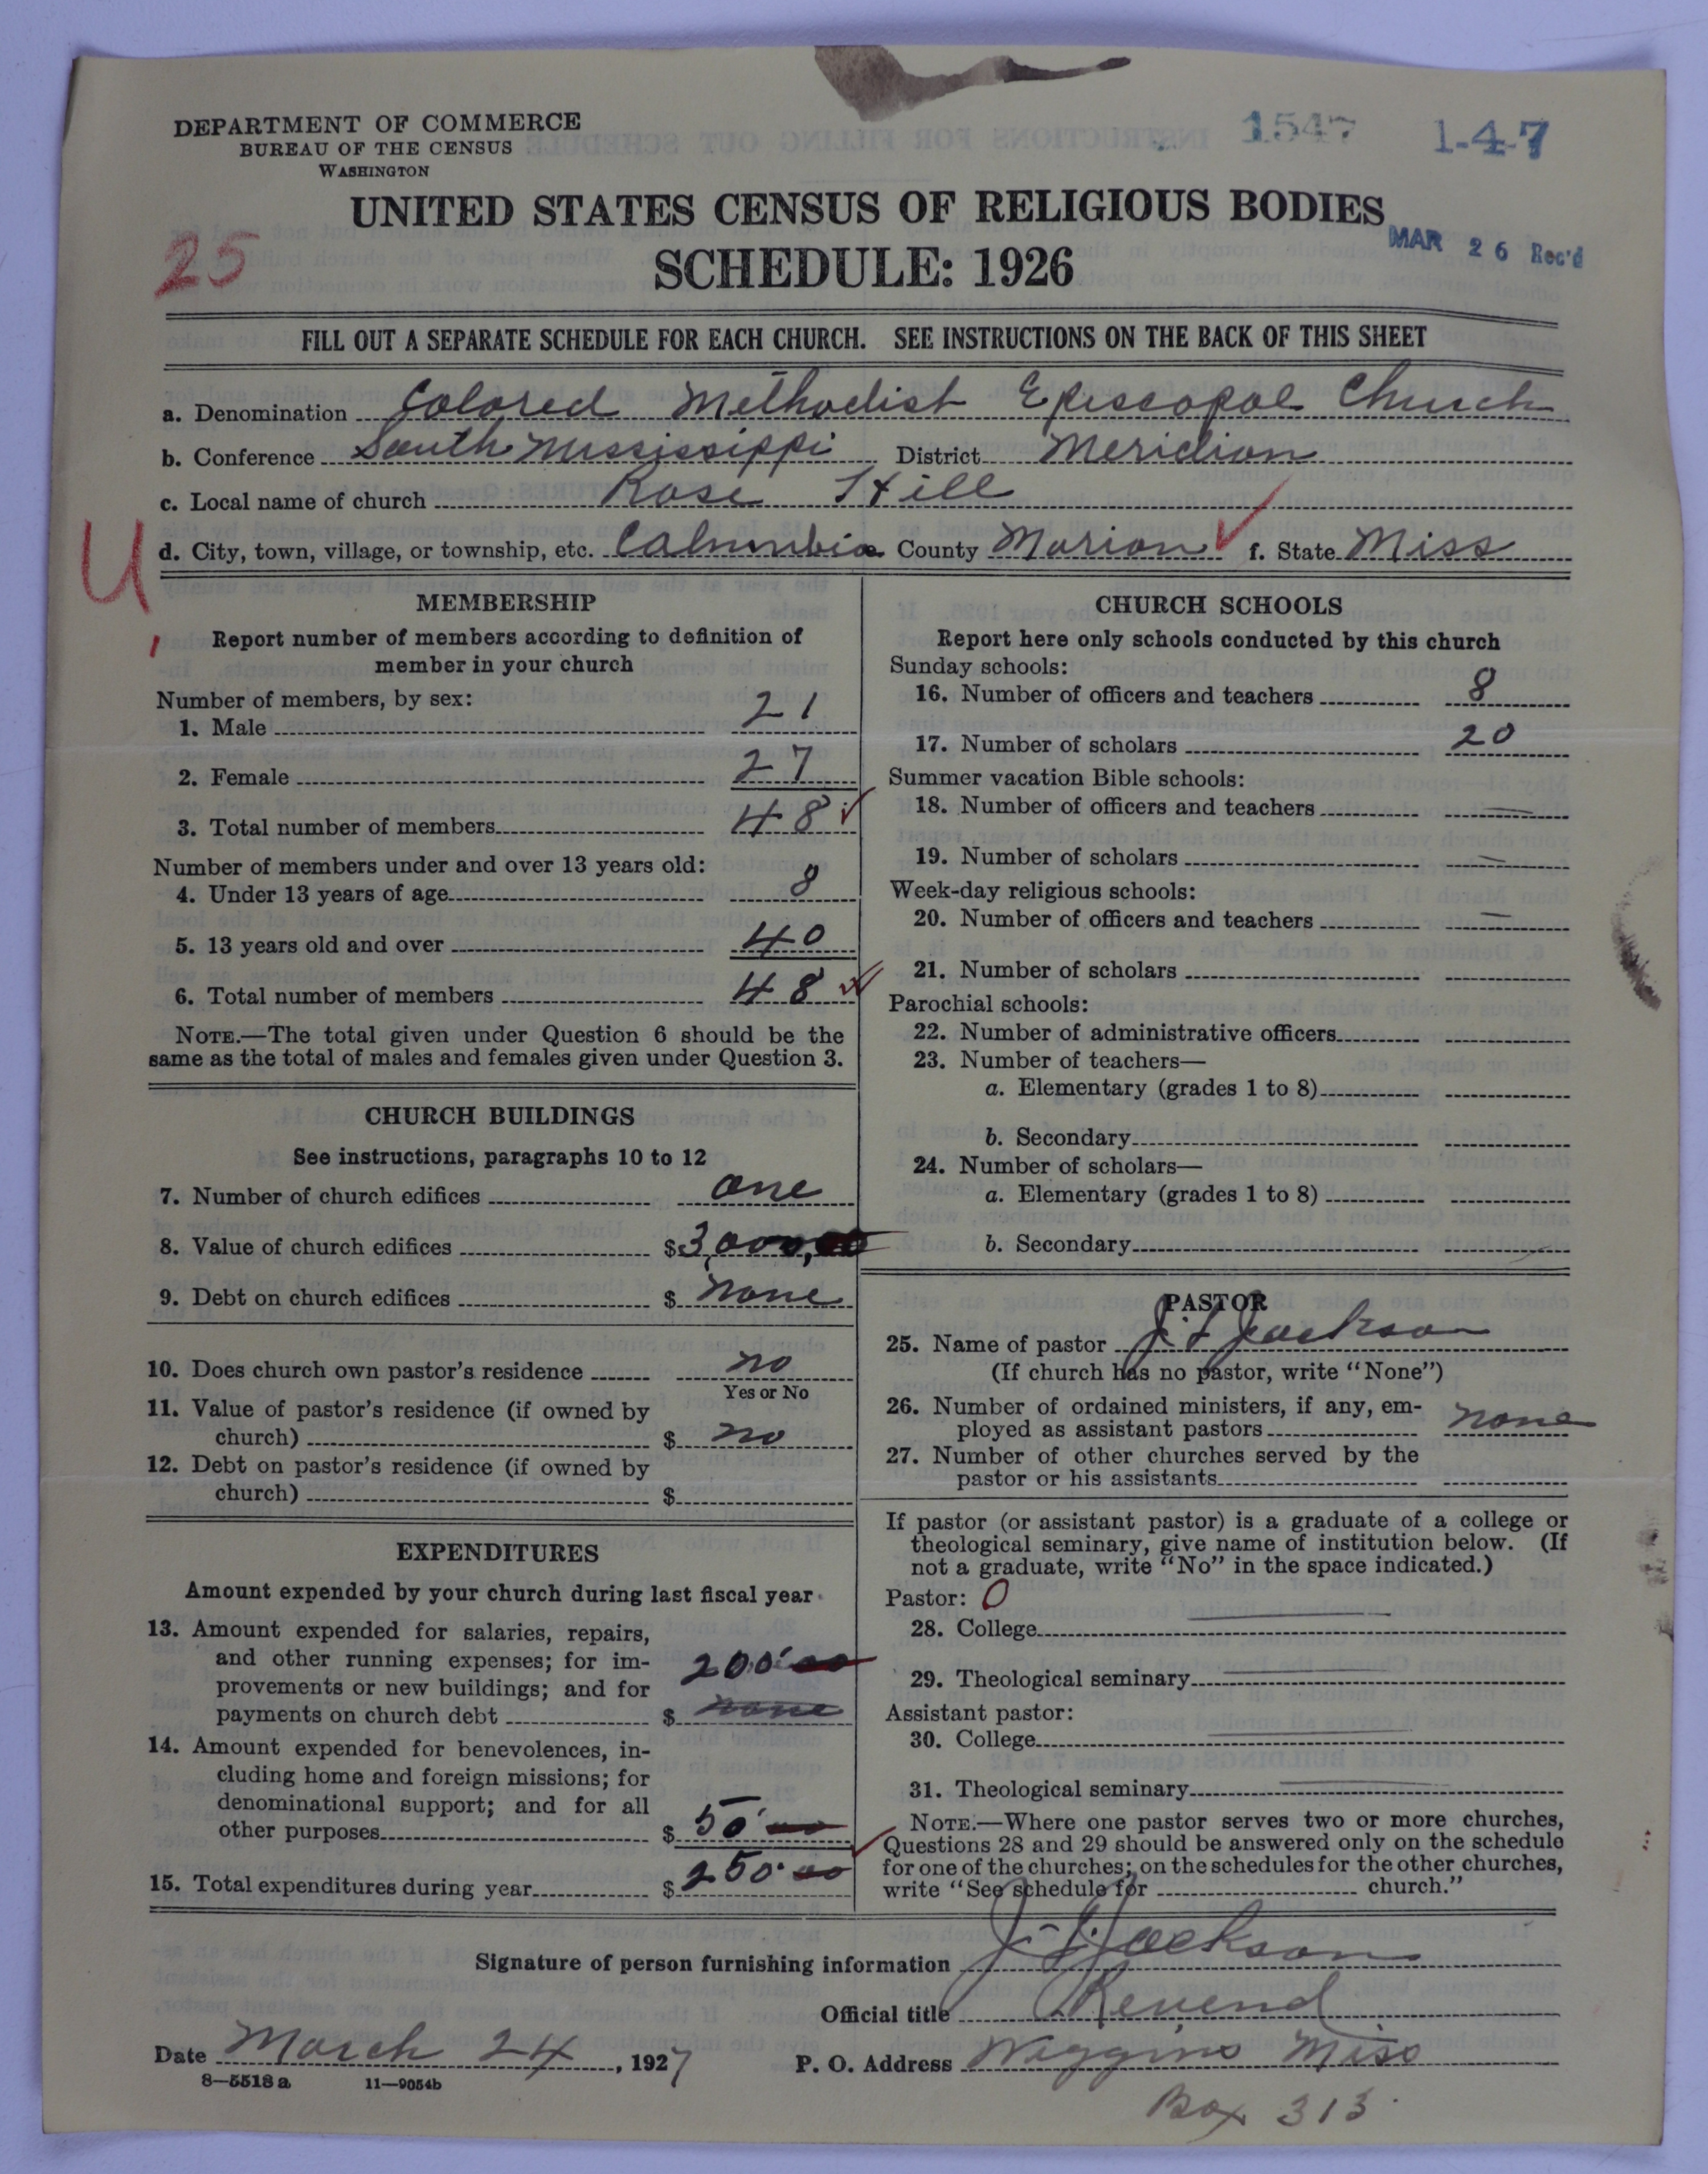 DEPARTMENT OF COMMERCE
BUREAU OF THE CENSUS
WASHINGTON
1547
1-4-7
UNITED STATES CENSUS OF RELIGIOUS BODIES
SCHEDULE: 1926
MAR 26 Rec'd
25
FILL OUT A SEPARATE SCHEDULE FOR EACH CHURCH. SEE INSTRUCTIONS ON THE BACK OF THIS SHEET
a. Denomination Colored Methodist Episcopal Church
b. Conference South Mississippi District Meridian
c. Local name of church Rose Hill
U
d. City, town, village, or township, etc. Columbia County Marion f. State Miss
MEMBERSHIP
Report number of members according to definition of
member in your church
Number of members, by sex:
1. Male 21
2. Female 27
3. Total number of members 48
Number of members under and over 13 years old:
4. Under 13 years of age 8
5. 13 years old and over 40
6. Total number of members 48
NOTE.—The total given under Question 6 should be the
same as the total of males and females given under Question 3.
CHURCH BUILDINGS
See instructions, paragraphs 10 to 12
7. Number of church edifices one
8. Value of church edifices $3,000,00
9. Debt on church edifices $ none
10. Does church own pastor's residence no
Yes or No
11. Value of pastor's residence (if owned by
church) $ no
12. Debt on pastor's residence (if owned by
church) $
EXPENDITURES
Amount expended by your church during last fiscal year
13. Amount expended for salaries, repairs,
and other running expenses; for im-
provements or new buildings; and for
payments on church debt $ 200 00 none
14. Amount expended for benevolences, in-
cluding home and foreign missions; for
denominational support; and for all
other purposes $ 50 00
15. Total expenditures during year $ 250 00
CHURCH SCHOOLS
Report here only schools conducted by this church
Sunday schools:
16. Number of officers and teachers 8
17. Number of scholars 20
Summer vacation Bible schools:
18. Number of officers and teachers
19. Number of scholars
Week-day religious schools:
20. Number of officers and teachers
21. Number of scholars
Parochial schools:
22. Number of administrative officers
23. Number of teachers—
a. Elementary (grades 1 to 8)
b. Secondary
24. Number of scholars—
a. Elementary (grades 1 to 8)
b. Secondary
PASTOR
25. Name of pastor J. L. Jackson
(If church has no pastor, write "None")
26. Number of ordained ministers, if any, em-
ployed as assistant pastors none
27. Number of other churches served by the
pastor or his assistants
If pastor (or assistant pastor) is a graduate of a college or
theological seminary, give name of institution below. (If
not a graduate, write "No" in the space indicated.)
Pastor: 0
28. College
29. Theological seminary
Assistant pastor:
30. College
31. Theological seminary
NOTE.—Where one pastor serves two or more churches,
Questions 28 and 29 should be answered only on the schedule
for one of the churches; on the schedules for the other churches,
write "See schedule for church."
Signature of person furnishing information Jackson
Official title Revend
Date March 24, 1927 P. O. Address Wiggins Miss
8—5518a 11—9054b
Box 313